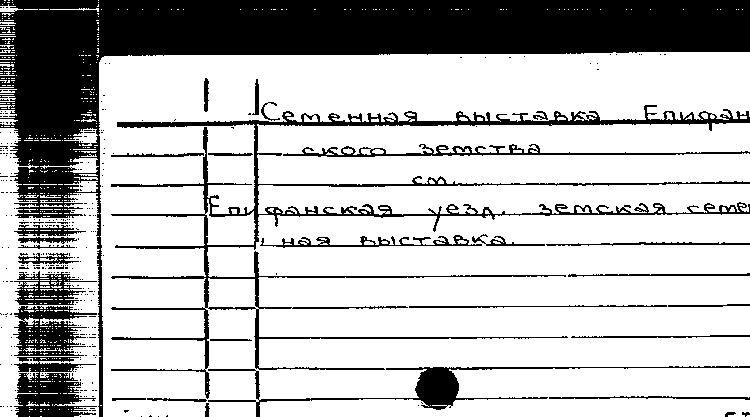 Семенная выставка Епифан
ского земства
см.
Епифанская уезд. земская семе
ная выставка.